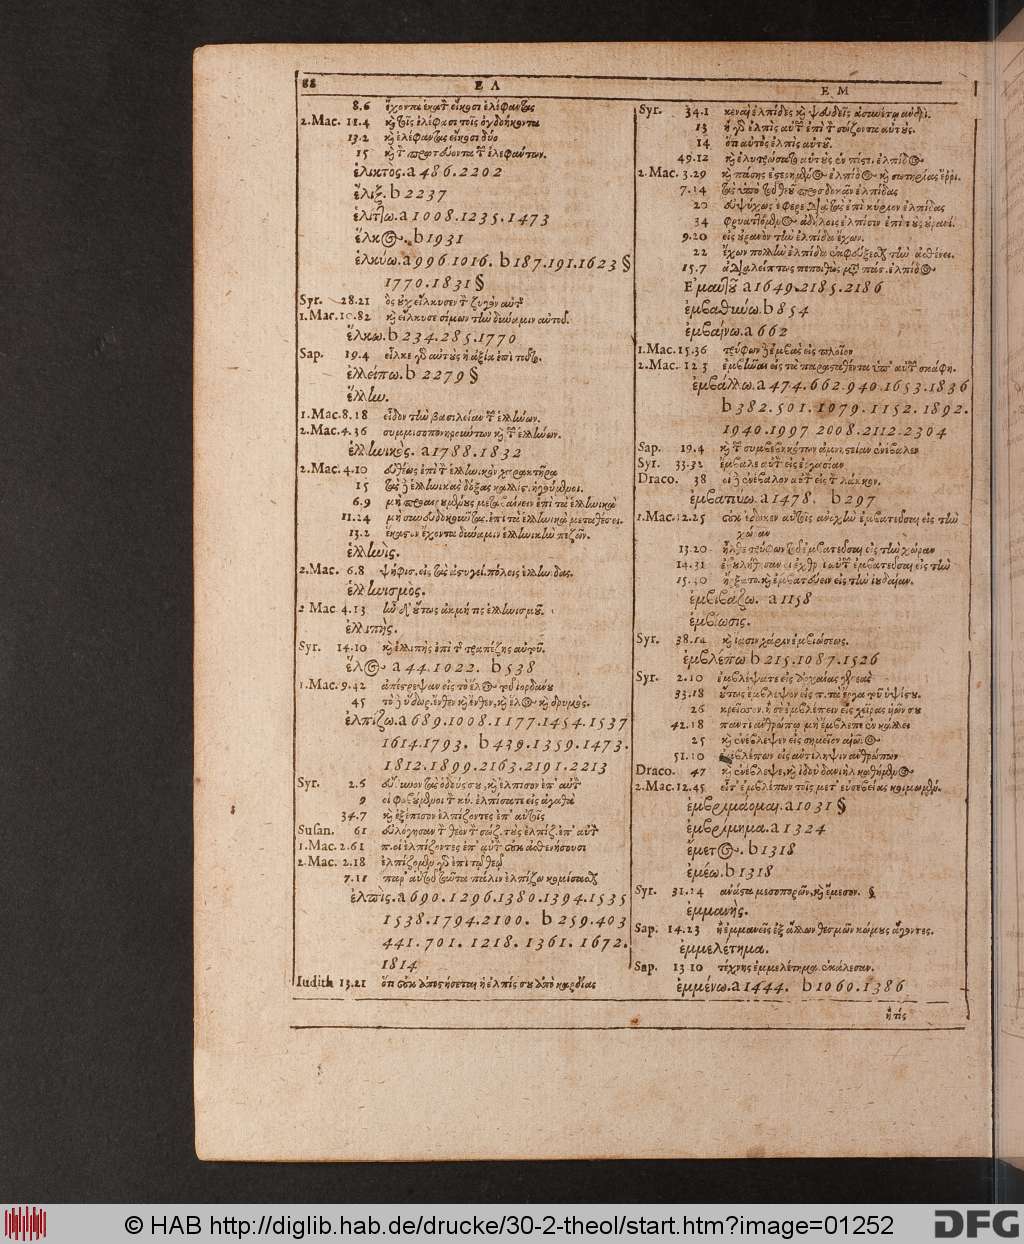 88 ΕΛ
8.6 ἔχοντα ἑκατὸν εἴκοσι ἐλέφαντας
2.Mac. 11.4 καὶ τοῖς ἐλέφασι τοῖς ὀγδοήκοντα
13.2 καὶ ἐλέφαντας εἴκοσι δύο
15 καὶ τὸν πρωτεύοντα τῶν ἐλεφάντων.
ἑλκτος.a 486.2202
ἕλιξ. b 2237
a 1008.1235.1473
ἕλκος. b 1931
ἑλκύω.a 996.1016. b 187.191.1623 §
1770.1831 §
Syr. 28.21 ὃς οὐχ εἵλκυσεν τὸν ζυγὸν αὐτῆς
1.Mac.10.82 καὶ εἵλκυσε σίμων τὴν δύναμιν αὐτοῦ.
ἕλκω. b 234.285.1770
Sap. 19.4 εἷλκε γὰρ αὐτοὺς ἡ ἀξία ἐπὶ τοῦτο.
ἐλλείπω. b 2279 §
ἕλλην.
1.Mac.8.18 εἶδον τὴν βασιλείαν τῶν ἑλλήνων.
2.Mac.4.36 συμμισοπονηρούντων καὶ τῶν ἑλλήνων.
ἑλληνικός. a 1788.1832
2.Mac.4.10 εὐθέως ἐπὶ τὸν ἑλληνικὸν χαρακτῆρα
15 τὰς δὲ ἑλληνικὰς δόξας καλλίστ. ἡγούμενοι.
6.9 μὴ προαιρουμένους μεταβαίνειν ἐπὶ τὰ ἑλληνικὰ
11.24 μὴ συνευδοκοῦντας. ἐπὶ τὰ ἑλληνικὰ μεταθέσει.
13.2 ἕκαστον ἔχοντα δύναμιν ἑλληνικὴν πεζῶν.
ἑλληνίς.
2.Mac. 6.8 ψήφισ. εἰς τὰς ἀστυγεί. πόλεις ἑλληνίδας.
ἑλληνισμός.
2 Mac. 4.13 ἦν δ' οὕτως ἀκμή τις ἑλληνισμοῦ.
ἐλλιπής.
Syr. 14.10 καὶ ἐλλιπὴς ἐπὶ τῆς τραπέζης αὐτοῦ.
ἕλος a 44.1022. b 538
1.Mac.9.42 ἀπέστρεψαν εἰς τὸ ἕλος τοῦ ἰορδάνου
45 τὸ δὲ ὕδωρ. ἔνθεν καὶ ἔνθεν, καὶ ἕλος καὶ δρυμός.
ἐλπίζω.a 689.1008.1177.1454.1537
1614.1793. b 439.1359.1473.
1812.1899.2163.2191.2213
Syr. 2.6 εὔθυνον τὰς ὁδούς σου, καὶ ἔλπισον ἐπ' αὐτὸν
9 οἱ φοβούμενοι τὸν κύ. ἐλπίσατε εἰς ἀγαθὰ
34.7 καὶ ἐξέπεσον ἐλπίζοντες ἐπ' αὐτοῖς
Susan. 61 εὐλόγησαν τὸν θεὸν τὸν σώζ. τοὺς ἐλπίζ. ἐπ' αὐτὸν
1.Mac. 2.61 π. οἱ ἐλπίζοντες ἐπ' αὐτὸν οὐκ ἀσθενήσουσι
2.Mac. 2.18 ἐλπίζομεν γὰρ ἐπὶ τῷ θεῷ
7.11 παρ' αὐτοῦ ταῦτα πάλιν ἐλπίζω κομίσασθαι
ἐλπίς.a 690.1296.1380.1394.1535
1538.1794.2100. b 259.403
441.701.1218.1361.1672.
1814
Iudith 13.21 ὅτι οὐκ ἀποστήσεται ἡ ἐλπίς σου ἀπὸ καρδίας
ΕΜ
Syr. 34.1 κεναὶ ἐλπίδες καὶ ψευδεῖς ἀσυνέτῳ ἀνδρί.
13 ἡ γὰρ ἐλπὶς αὐτῶν ἐπὶ τὸν σώζοντα αὐτούς.
14 ὅτι αὐτὸς ἐλπὶς αὐτοῦ.
49.12 καὶ ἐλυτρώσατο αὐτοὺς ἐν πίστ. ἐλπίδος
2.Mac. 3.29 καὶ πάσης ἐστερημένος ἐλπίδος καὶ σωτηρίας ἔρρι.
7.14 τὰς ὑπὸ τοῦ θεοῦ προσδοκᾶν ἐλπίδας
20 εὐψύχως ἔφερε διὰ τὰς ἐπὶ κύριον ἐλπίδας
34 φρυαττόμενος ἀδήλοις ἐλπίσιν ἐπὶ τοὺς οὐρανί.
9.20 εἰς οὐρανὸν τὴν ἐλπίδα ἔχων.
22 ἔχων πολλὴν ἐλπίδα ἐκφεύξεσθαι τὴν ἀσθένει.
15.7 ἀδιαλείπτως πεποιθὼς μετὰ πάσ. ἐλπίδος
Ἐμαυτοῦ a 1649.2185.2186
ἐμβαθύνω. b 854
ἐμβαίνω.a 662
1.Mac.15.36 τρύφων δὲ ἐμβὰς εἰς πλοῖον
2.Mac. 12 3 ἐμβῆναι εἰς τὰ παρασταθέντα ὑπ' αὐτῶν σκάφη.
ἐμβάλλω.a 474.662.940.1653.1836
b 382.501.1079.1152.1892.
1940.1997 2008.2112.2304
Sap. 19.4 καὶ τῶν συμβεβηκότων ἀμνηστείαν ἐνέβαλεν
Syr. 33.32 ἔμβαλε αὐτὸν εἰς ἐργασίαν
Draco. 38 οἱ δὲ ἐνέβαλον αὐτὸν εἰς τὸν λάκκον.
ἐμβατεύω.a 1478. b 297
1.Mac.12.25 οὐκ ἔδωκεν αὐτοῖς ἀνοχὴν ἐμβατεῦσαι εἰς τὴν
χώραν
13.20 ἦλθε τρύφων τοῦ ἐμβατεῦσαι εἰς τὴν χώραν
14.31 ἐβουλήθησαν οἱ ἐχθροὶ αὐτῶν ἐμβατεῦσαι εἰς τὴν
15.40 ἤρξατο. καὶ ἐμβατεύειν εἰς τὴν ἰουδαίαν.
ἐμβιβάζω. a 1158
ἐμβίωσις.
Syr. 38.14 καὶ ἴασιν χάριν ἐμβιώσεως.
ἐμβλέπω b 215.1087.1526
Syr. 2.10 ἐμβλέψατε εἰς ἀρχαίας γενεὰς
33.18 οὕτως ἔμβλεψον εἰς π. τὰ ἔργα τοῦ ὑψίστου.
26 κρεῖσσον. ἢ σὲ ἐμβλέπειν εἰς χεῖρας υἱῶν σου
42.18 παντὶ ἀνθρώπῳ μὴ ἔμβλεπε ἐν κάλλει
25 καὶ ἐνέβλεψεν εἰς σημεῖον αἰῶνος
51.10 ἐμβλέπων εἰς ἀντίληψιν ἀνθρώπων
Draco. 47 καὶ ἐνέβλεψε, καὶ ἰδοὺ δανιὴλ καθήμενος
2.Mac.12.45 εἶτ' ἐμβλέπων τοῖς μετ' εὐσεβείας κοιμωμέν.
ἐμβριμάομαι.a 1031 §
ἐμβρίμημα.a 1324
ἔμετος. b 1318
ἐμέω. b 1318
Syr. 31.24 ἀνάστα μεσοπορῶν, καὶ ἔμεσον. §
ἐμμανής.
Sap. 14.23 ἢ ἐμμανεῖς ἐξ ἄλλων θεσμῶν κώμους ἄγοντες.
ἐμμελέτημα.
Sap. 13 10 τέχνης ἐμμελέτημα. ἐκάλεσαν.
ἐμμένω.a 1444. b 1060.1386
ἤ τίς
© HAB http://diglib.hab.de/drucke/30-2-theol/start.htm?image=01252
DFG